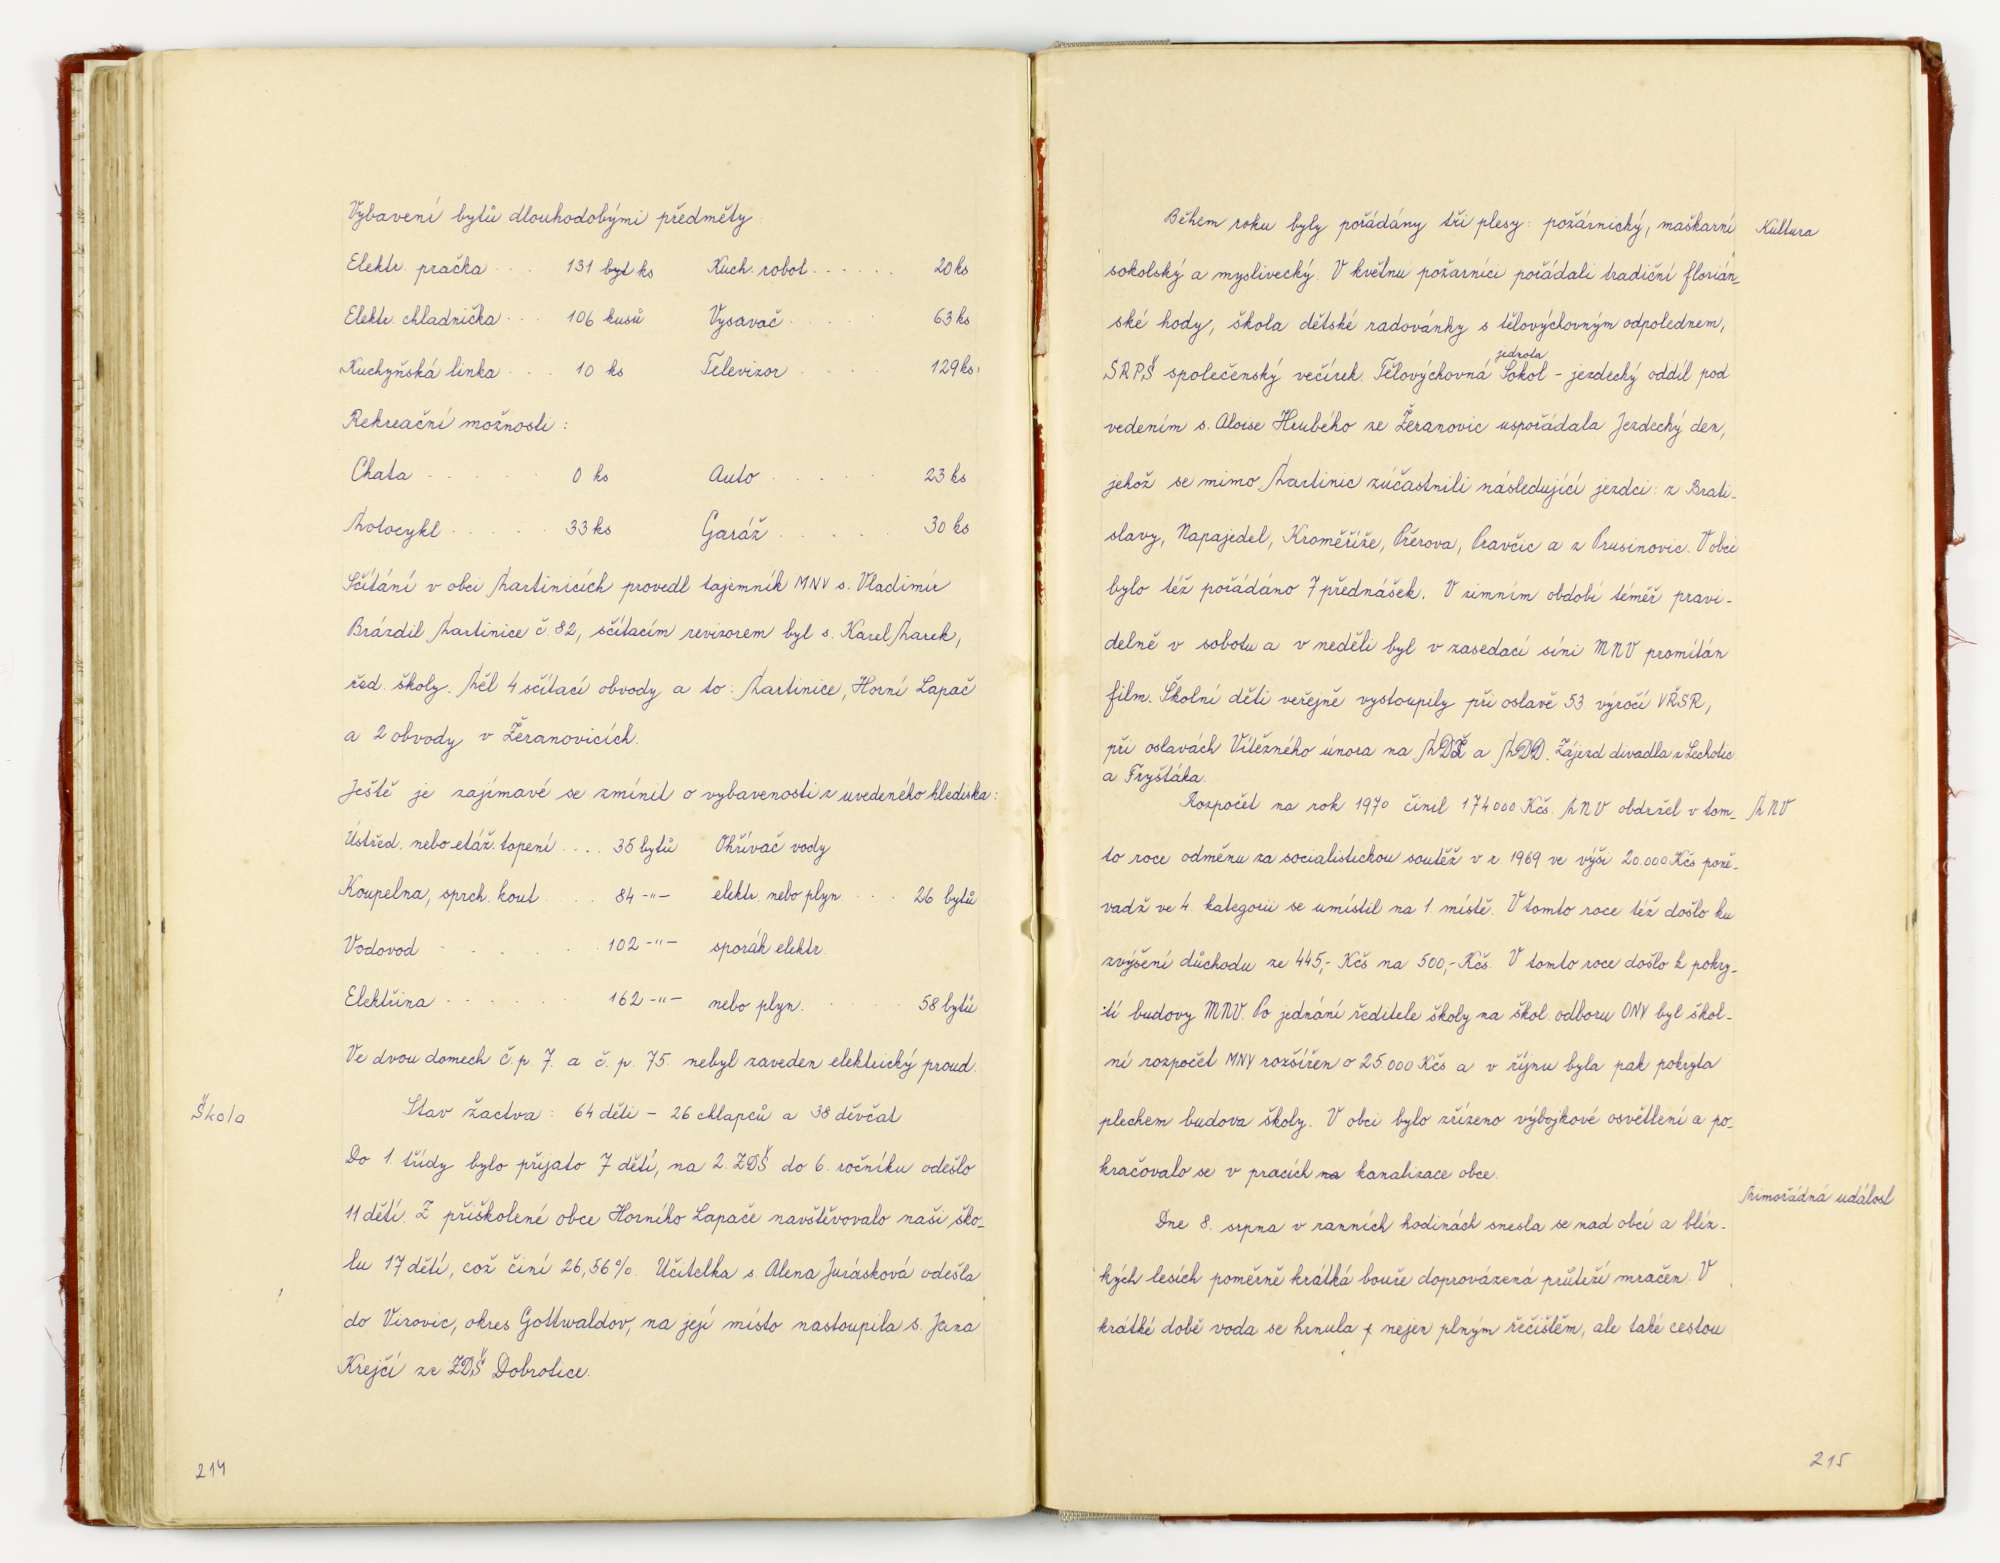 Vybavení bytů dlouhodobými předměty
Elektr. pračka . . . 131 byt ks Kuch. robot . . . . . . 20 ks
Elektr. chladnička . . . 106 kusů Vysavač . . . . . 63 ks
Kuchyňská linka . . . 10 ks Televizor . . . . 129 ks.
Rekreační možnosti :
Chata . . . . . 0 ks Auto . . . . . 23 ks
Motocykl . . . . . 33 ks Garáž . . . . . 30 ks
Sčítání v obci Martinicích provedl tajemník MNV s. Vladimír
Brázdil Martinice č. 82, sčítacím revizorem byl s. Karel Marek,
řed. školy. Měl 4 sčítací obvody a to : Martinice, Horní Lapač
a 2 obvody v Žeranovicích.
Ještě je zajímavé se zmínit o vybavenosti z uvedeného hlediska :
Ústřed. nebo etáž. topení . . . . 35 bytů Ohřívač vody
Koupelna, sprch. kout . . . . 84 -"- elektr. nebo plyn . . . 26 bytů
Vodovod . . . . . . 102 -"- sporák elektr.
Elektřina . . . . . . 162 -"- nebo plyn. . . . . 58 bytů
Ve dvou domech č. p. 7. a č. p. 75. nebyl zaveden elektrický proud.
Škola
Stav žactva : 64 děti – 26 chlapců a 38 děvčat
Do 1. třídy bylo přijato 7 dětí, na 2. ZDŠ do 6. ročníku odešlo
11 dětí. Z přiškolené obce Horního Lapače navštěvovalo naši ško-
lu 17 dětí, což činí 26,56%. Učitelka s. Alena Jurásková odešla
do Vizovic, okres Gottwaldov, na její místo nastoupila s. Jana
Krejčí ze ZDŠ Dobrotice.
214
Během roku byly pořádány tři plesy : požárnický, maškarní Kultura
sokolský a myslivecký. V květnu požárníci pořádali tradiční florián-
ské hody, škola dětské radovánky s tělovýchovným odpolednem,
jednota
SRPŠ společenský večírek. Tělovýchovná Sokol – jezdecký oddíl pod
vedením s. Aloise Hrubého ze Žeranovic uspořádala Jezdecký den,
jehož se mimo Martinic zúčastnili následující jezdci : z Brati-
slavy, Napajedel, Kroměříže, Přerova, Pravčic a z Prusinovic. V obci
bylo též pořádáno 7 přednášek. V zimním období téměř pravi-
delně v sobotu a v neděli byl v zasedací síni MNV promítán
film. Školní děti veřejně vystoupily při oslavě 53 výročí VŘSR,
při oslavách Vítězného února na MDŽ a MDD. Zájezd divadla z Lechotec
a Fryštáka.
Rozpočet na rok 1970 činil 174 000 Kčs. MNV obdržel v tom- MNV
to roce odměnu za socialistickou soutěž v r. 1969 ve výši 20.000 Kčs poně-
vadž ve 4. kategorii se umístil na 1. místě. V tomto roce též došlo ku
zvýšení důchodu ze 445,- Kčs na 500,- Kčs. V tomto roce došlo k pokry-
tí budovy MNV. Po jednání ředitele školy na škol. odboru ONV byl škol-
ní rozpočet MNV rozšířen o 25.000 Kčs a v říjnu byla pak pokryta
plechem budova školy. V obci bylo zřízeno výbojkové osvětlení a po-
kračovalo se v pracích na kanalizace obce.
Mimořádná událost
Dne 8. srpna v ranních hodinách snesla se nad obcí a blíz-
kých lesích poměrně krátká bouře doprovázená průtrží mračen. V
krátké době voda se hrnula nejen plným řečištěm, ale také cestou
215